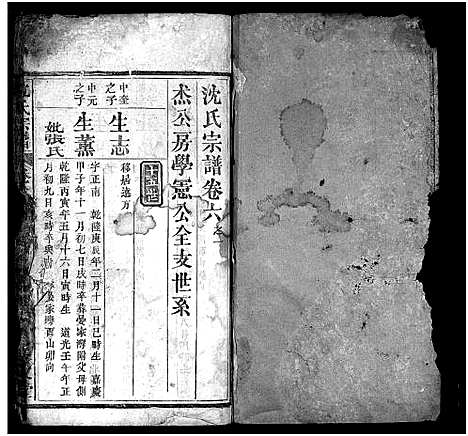 沈氏宗譜卷六之一
杰公房學憲公全支世系
十五世
中奎之子
生志
移居遠方
中元之子
生蕙
字正南 乾隆庚辰年二月十一日巳時生 嘉慶
甲子年十一月初七日戌時卒葬晏家灣附父母側
妣張氏
乾隆丙寅年五月十六日寅時生 道光壬午年正
月初九日亥時卒
家灣酉山卯向